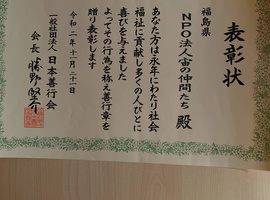 表彰状
福島県
NPO法人宙の仲間たち 殿
あなた方は永年にわたり社会
福祉に貢献し多くの人びとに
喜びを与えました
よってその行為を称え善行章を
贈り表彰します
令和二年十一月二十一日
一般社団法人 日本善行会
会長 勝野堅介